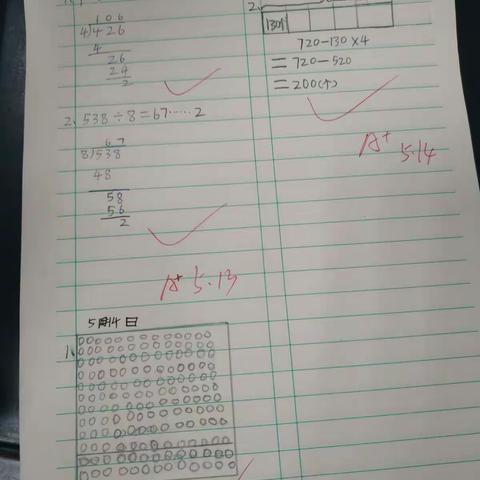 106
4)426
4
26
24
2
2. 538÷8=67……2
67
8)538
48
58
56
2
A+ 5.13
5月14日
1.
2.
130个
720-130×4
=720-520
=200(个)
A+ 5.14